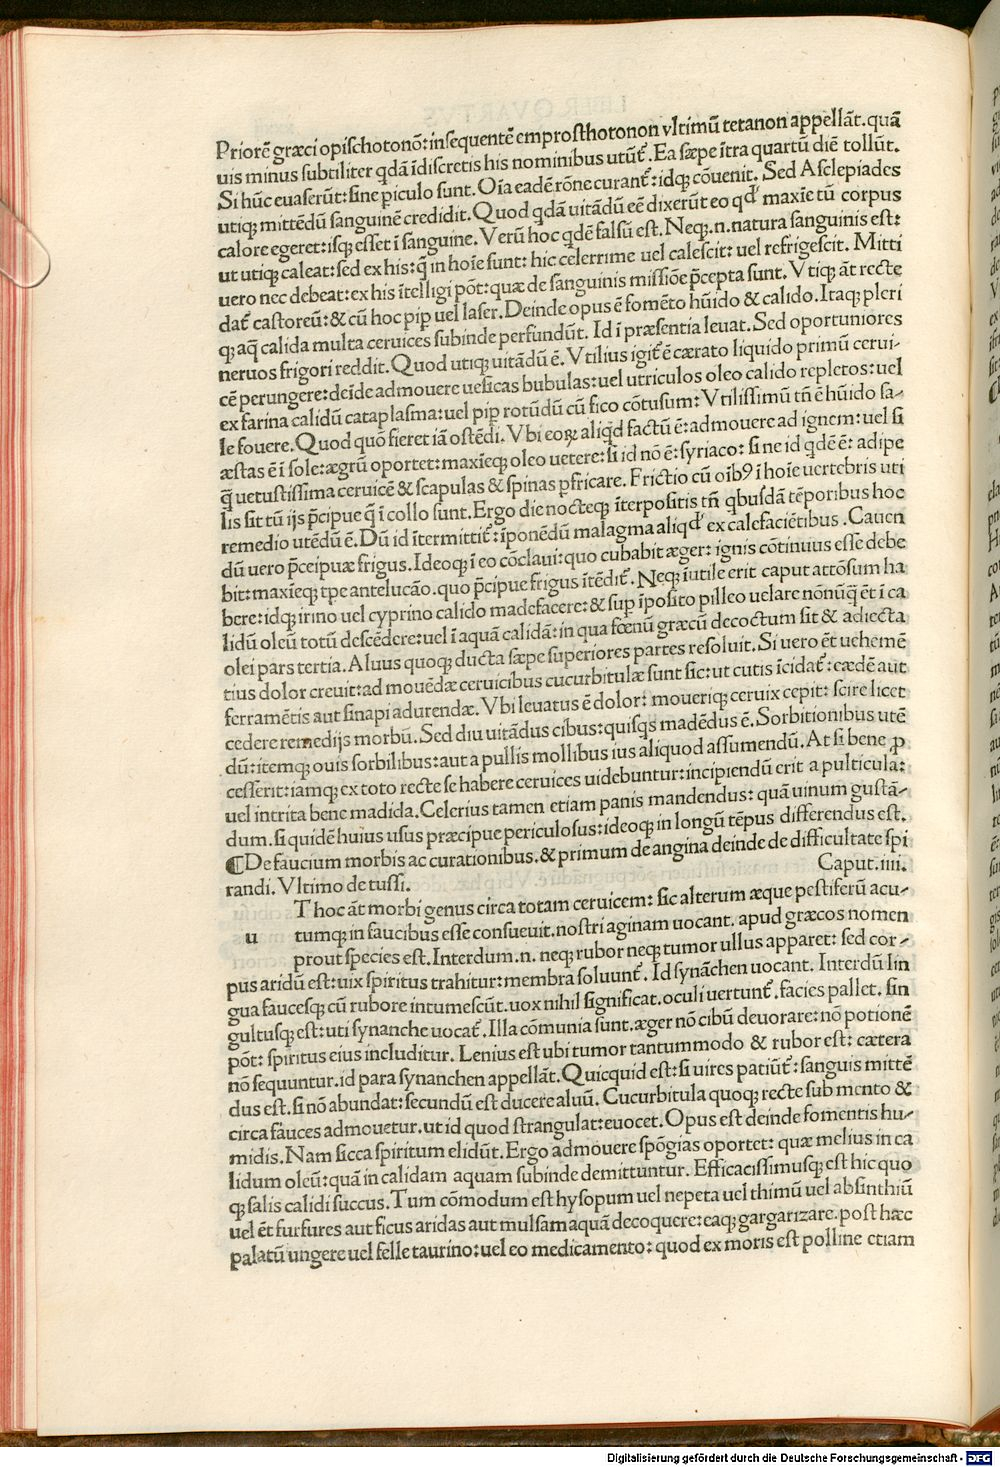 Priorē græci opischotonō: insequentē emprosthotonon vltimū tetanon appellāt. quā
uis minus subtiliter qdā īdiscretis his nominibus utūt᷑. Ea sæpe ītra quartū diē tollūt.
Si hūc euaserūt: sine piculo sunt. Oīa eadē rōne curant᷑: idqꝫ cōuenit. Sed Asclepiades
utiqꝫ mittēdū sanguinē credidit. Quod qdā uitādū eē dixerūt eo qd' maxīe tū corpus
calore egeret: isqꝫ esset ī sanguine. Verū hoc qdē falsū est. Neqꝫ .n. natura sanguinis est:
ut utiqꝫ caleat: sed ex his: q̄ in hoīe sunt: hic celerrime uel calescit: uel refrigescit. Mitti
uero nec debeat: ex his ītelligi pōt: quæ de sanguinis missiōe p̄cepta sunt. Vtiqꝫ āt recte
dat᷑ castoreū: & cū hoc pip uel laser. Deinde opus ē fomēto hūido & calido. Itaqꝫ pleri
qꝫ aq̄ calida multa ceruices subinde perfundūt. Id ī præsentia leuat. Sed oportuniores
neruos frigori reddit. Quod utiqꝫ uitādū ē. Vtilius igit᷑ ē cærato liquido primū cerui-
cē perungere: deīde admouere uesicas bubulas: uel utriculos oleo calido repletos: uel
ex farina calidū cataplasma: uel pip rotūdū cū fico cōtusum: Vtilissimū tn̄ ē hūido sa-
le fouere. Quod quō fieret iā ostēdi. Vbi eoꝝ aliqd factū ē: admouere ad ignem: uel si
æstas ē ī sole: ægrū oportet: maxīeqꝫ oleo uetere: si id nō ē: syriaco: si ne id qdē ē: adipe
q̄ uetustissima ceruicē & scapulas & spinas pfricare. Frictio cū oīb9 ī hoīe uertebris uti
lis sit tū ijs p̄cipue q̄ ī collo sunt. Ergo die nocteqꝫ īterpositis tn̄ qbusdā tēporibus hoc
remedio utēdū ē. Dū id ītermittit᷑: īponēdū malagma aliqd' ex calefaciētibus. Cauen
dū uero p̄ceipuæ frigus. Ideoqꝫ ī eo cōclaui: quo cubabit æger: ignis cōtinuus esse debe
bit: maxīeqꝫ tpe antelucāo. quo p̄cipue frigus ītēdit᷑. Neqꝫ īutile erit caput attōsum ha
bere: idqꝫ irino uel cyprino calido madefacere: & sup īposito pilleo uelare nonūq̄ ēt ī ca
lidū oleū totū descēdere: uel ī aquā calidā: in qua fœnū græcū decoctum sit & adiecta
olei pars tertia. Aluus quoqꝫ ducta sæpe superiores partes resoluit. Si uero ēt uehemē
tius dolor creuit: ad mouēdæ ceruicibus cucurbitulæ sunt sic: ut cutis īcidat᷑: eædē aut
ferramētis aut sinapi adurendæ. Vbi leuatus ē dolor: moueriqꝫ ceruix cepit: scire licet
cedere remedijs morbū. Sed diu uitādus cibus: quisqs madēdus ē. Sorbitionibus utē
dū: itemqꝫ ouis sorbilibus: aut a pullis mollibus ius aliquod assumendū. At si bene ꝓ
cesserit: iamqꝫ ex toto recte se habere ceruices uidebuntur: incipiendū erit a pulticula:
uel intrita bene madida. Celerius tamen etiam panis mandendus: quā uinum gustā-
dum. si quidē huius usus præcipue periculosus: ideoqꝫ in longū tēpus differendus est.
¶De faucium morbis ac curationibus. & primum de angina deinde de difficultate spi
randi. Vltimo de tussi. Caput. iiii.
u Thoc āt morbi genus circa totam ceruicem: sic alterum æque pestiferū acu-
tumqꝫ in faucibus esse consueuit. nostri aginam uocant. apud græcos nomen
prout species est. Interdum .n. neqꝫ rubor neqꝫ tumor ullus apparet: sed cor-
pus aridū est: uix spiritus trahitur: membra soluunt᷑. Id synāchen uocant. Interdū lin
gua faucesqꝫ cū rubore intumescūt. uox nihil significat. oculi uertunt᷑. facies pallet. sin
gultusqꝫ est: uti synanche uocat᷑. Illa cōmunia sunt. æger nō cibū deuorare: nō potionē
pōt: spiritus eius includitur. Lenius est ubi tumor tantummodo & rubor est: cætera
nō sequuntur. id para synanchen appellāt. Quicquid est: si uires patiūt᷑: sanguis mittē
dus est. si nō abundat: secundū est ducere aluū. Cucurbitula quoqꝫ recte sub mento &
circa fauces admouetur. ut id quod strangulat: euocet. Opus est deinde fomentis hu-
midis. Nam sicca spiritum elidūt. Ergo admouere spōgias oportet: quæ melius in ca
lidum oleū: quā in calidam aquam subinde demittuntur. Efficacissimusqꝫ est hic quo
qꝫ salis calidi succus. Tum cōmodum est hysopum uel nepeta uel thimū uel absinthiū
uel ēt furfures aut ficus aridas aut mulsam aquā decoquere: eaqꝫ gargarizare. post hæc
palatū ungere uel felle taurino: uel eo medicamento: quod ex moris est polline etiam
Digitalisierung gefördert durch die Deutsche Forschungsgemeinschaft - DFG